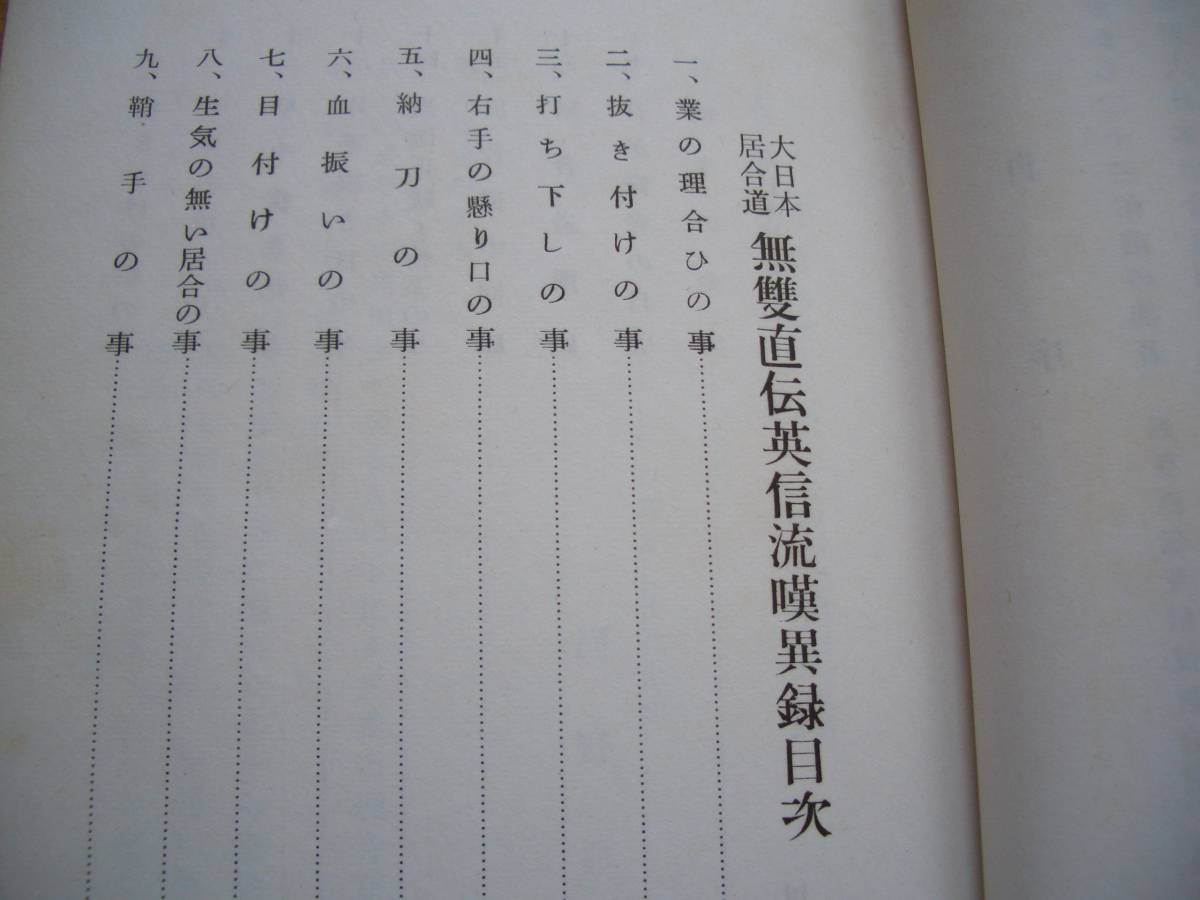 大日本
居合道
無雙直伝英信流嘆異録目次
一、業の理合ひの事
二、抜き付けの事
三、打ち下しの事
四、右手の懸り口の事
五、納刀の事
六、血振いの事
七、目付けの事
八、生気の無い居合の事
九、鞘手の事